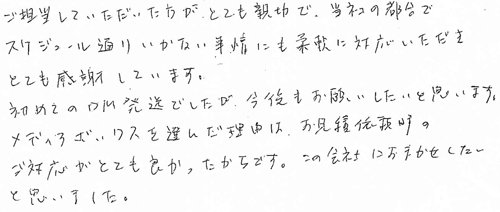 ご担当していただいた方が、とても親切で、当社の都合で
スケジュール通りいかない事情にも柔軟に対応いただき
とても感謝しています。
初めてのDM発送でしたが、今後もお願いしたいと思います。
メディアボックスを選んだ理由は、お見積依頼時の
ご対応がとても良かったからです。この会社におまかせしたい
と思いました。